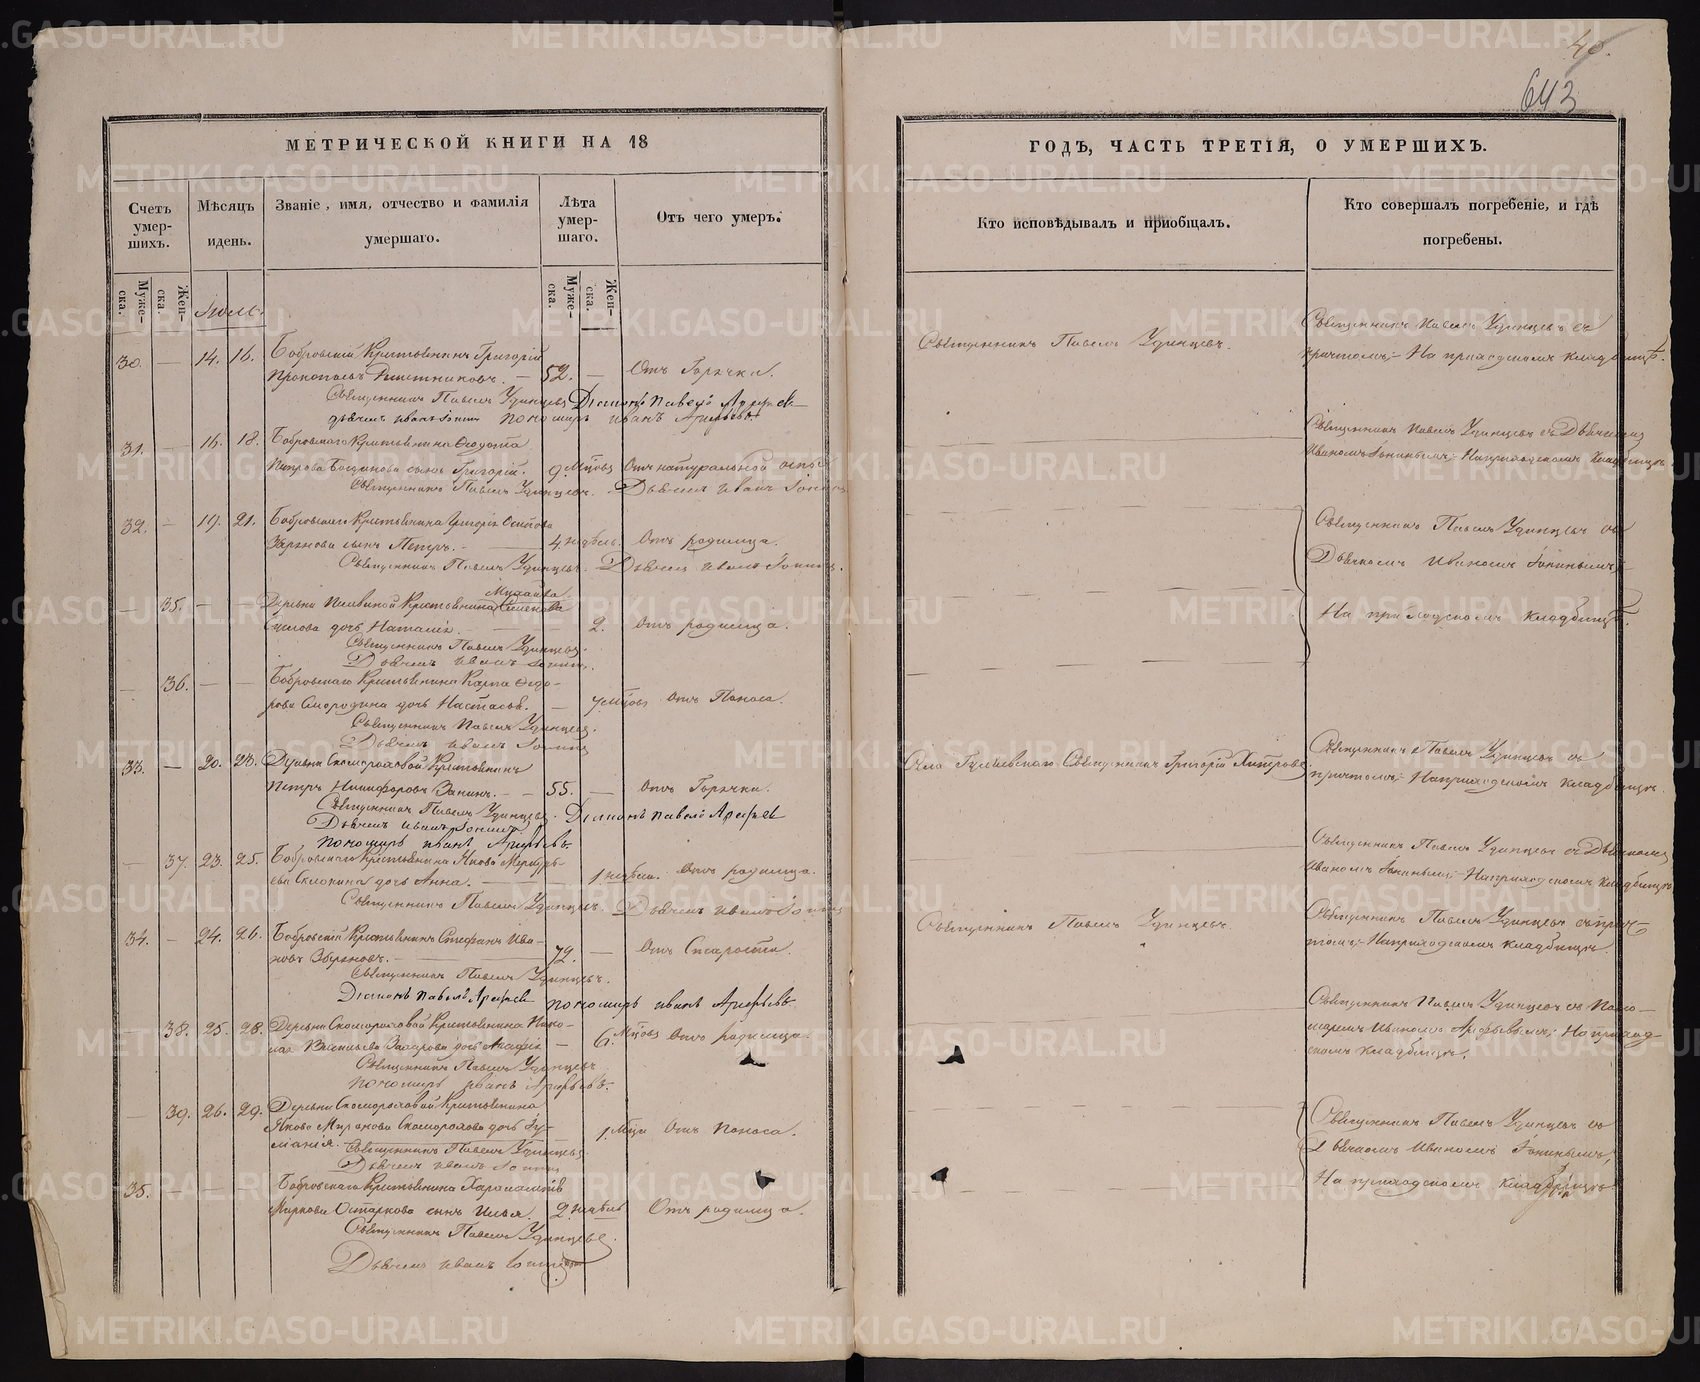 40.
643
МЕТРИЧЕСКОЙ КНИГИ НА 18
Счетъ умер-шихъ.
Мѣсяцъ и день.
Званіе, имя, отчество и фамилія умершаго.
Лѣта умер-шаго.
Отъ чего умеръ.
Муже-ска.
Жен-ска.
Муже-ска.
Жен-ска.
Іюль.
30. — 14. 16. Бобровскій Крестьянинъ Григорій
Прокопьевъ — 52. — Отъ Горячки.
Священникъ Павелъ Удинцевъ Діаконъ Павелъ Арефьев
дьячекъ Иванъ Пономарь Иванъ Арефьевъ
31. — 16. 18. Бобровскаго Крестьянина Ѳедота
Петрова сынъ Григорій. 9. Мцовъ Отъ натуральной оспы
Священникъ Павелъ Удинцевъ. Дьячекъ Иванъ
32. — 19. 21. Бобровскаго Крестьянина Григорія Осипова
сынъ Петръ. — 4. недѣль. Отъ родимца.
Священникъ Павелъ Удинцевъ. Дьячекъ Иванъ
— 35. — — Деревни Крестьянина Семенова
дочь Наталія. 2. Отъ родимца.
Священникъ Павелъ Удинцевъ.
Дьячекъ Иванъ
— 36. — — Бобровскаго Крестьянина Карпа Ѳедо-
рова Смородина дочь Настасья. — 7 мцовъ Отъ Поноса.
Священникъ Павелъ Удинцевъ.
Дьячекъ Иванъ
33. — 20. 23. Деревни Скомороховой Крестьянинъ
Петръ Никифоровъ Занинъ. — 55. — Отъ Горячки.
Священникъ Павелъ Удинцевъ. Діаконъ Павелъ Арефьев
Дьячекъ Иванъ
Пономарь Иванъ Арефьевъ
— 37. 23. 25. Бобровскаго Крестьянина Якова Меркурь-
ева дочь Анна. — 1. недѣли. Отъ родимца.
Священникъ Павелъ Удинцевъ. Дьячекъ Иванъ
34. — 24. 26. Бобровскій Крестьянинъ Стефанъ Ива-
новъ — 72. — Отъ Старости.
Священникъ Павелъ Удинцевъ.
Діаконъ Павелъ Арефьев Пономарь Иванъ Арефьевъ
— 38. 25. 28. Деревни Скомороховой Крестьянина Нико-
лая дочь — 6. Мцовъ Отъ родимца.
Священникъ Павелъ Удинцевъ
Пономарь Иванъ Арефьевъ.
— 39. 26. 29. Деревни Скомороховой Крестьянина
Якова Миронова Скоморохова дочь Іу-
ліанія. 1. Мца Отъ Поноса.
Священникъ Павелъ Удинцевъ
Дьячекъ Иванъ
35. — — Бобровскаго Крестьянина Харлампія
Маркова сынъ Илья. 2. недѣль Отъ родимца.
Священникъ Павелъ Удинцевъ.
Дьячекъ Иванъ
ГОДЪ, ЧАСТЬ ТРЕТІЯ, О УМЕРШИХЪ.
Кто исповѣдывалъ и пріобщалъ.
Кто совершалъ погребеніе, и гдѣ погребены.
Священникъ Павелъ Удинцевъ.
Священникъ Павелъ Удинцевъ съ
причтомъ; На приходскомъ кладбищѣ.
Священникъ Павелъ Удинцевъ съ Дьячкомъ
Иваномъ; На приходскомъ кладбищѣ
Священникъ Павелъ Удинцевъ съ
Дьячкомъ Иваномъ
На приходскомъ кладбищѣ.
Села Священникъ Григорій Хитровъ
Священникъ Павелъ Удинцевъ съ
причтомъ; На приходскомъ кладбищѣ.
Священникъ Павелъ Удинцевъ съ Дьячкомъ
Иваномъ; На приходскомъ кладбищѣ
Священникъ Павелъ Удинцевъ.
Священникъ Павелъ Удинцевъ съ прич-
томъ; На приходскомъ кладбищѣ.
Священникъ Павелъ Удинцевъ съ Поно-
маремъ Иваномъ Арефьевымъ; На приход-
скомъ кладбищѣ.
Священникъ Павелъ Удинцевъ съ
Дьячкомъ Иваномъ
На приходскомъ кладбищѣ
METRIKI.GASO-URAL.RU